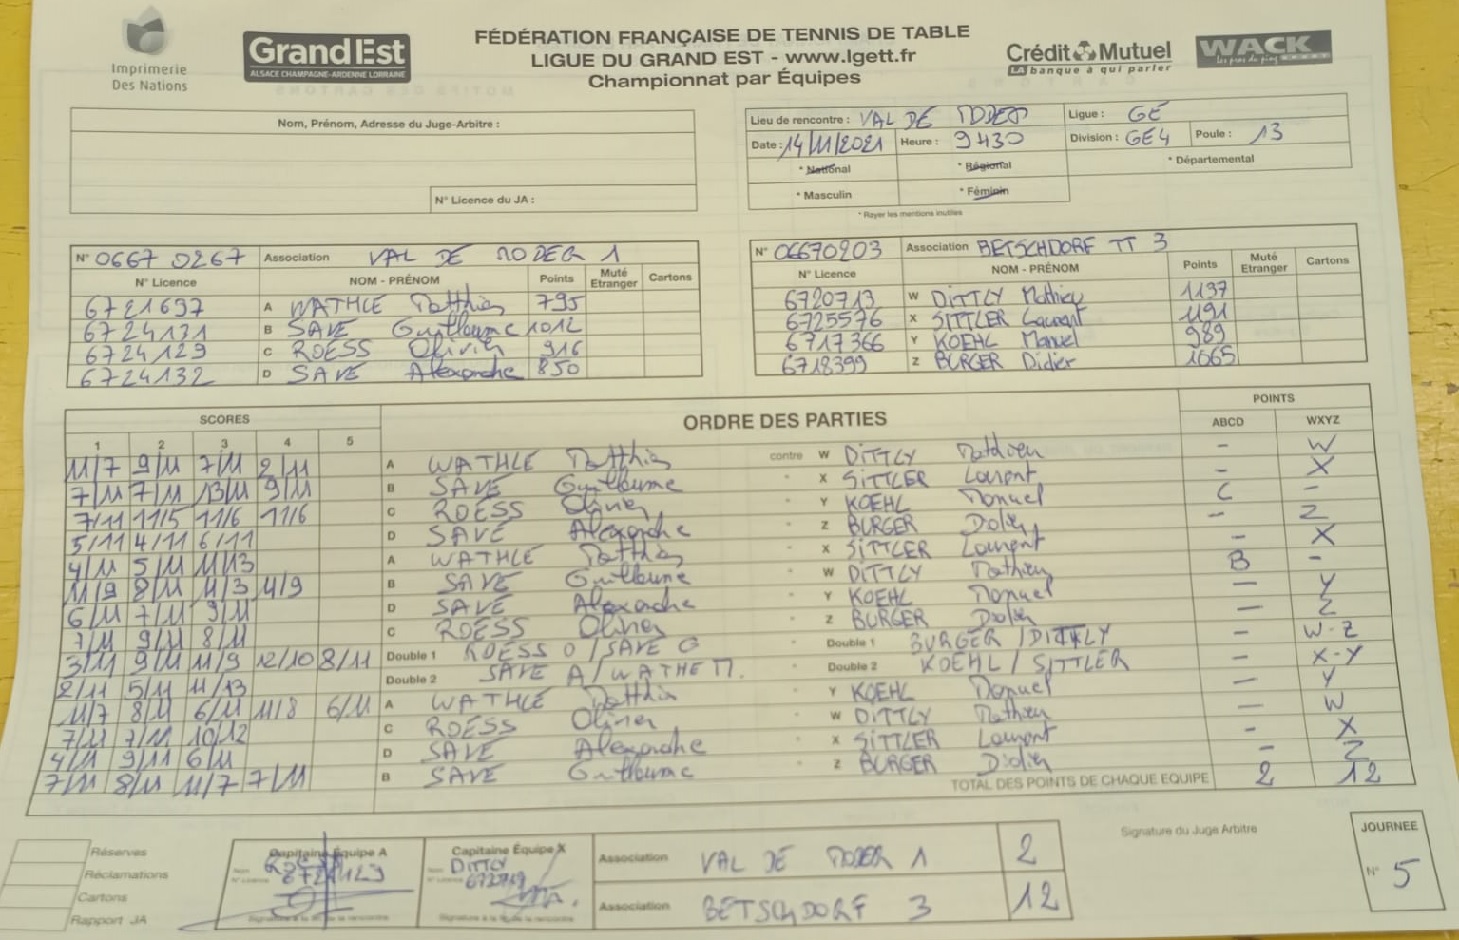 Imprimerie
Des Nations
GrandEst
ALSACE CHAMPAGNE-ARDENNE LORRAINE
FÉDÉRATION FRANÇAISE DE TENNIS DE TABLE
LIGUE DU GRAND EST - www.lgett.fr
Championnat par Équipes
Crédit Mutuel
LA banque à qui parler
WACK
Nom, Prénom, Adresse du Juge-Arbitre :
N° Licence du JA :
Lieu de rencontre : VAL DE MODER Ligue : GE
Date : 14/11/2021 Heure : 9H30 Division : GE4 Poule : 13
* National * Régional * Départemental
* Masculin * Féminin
* Rayer les mentions inutiles
N° 0667 0267 Association VAL DE MODER 1
N° Licence NOM - PRÉNOM Points Muté Etranger Cartons
6721697 A WATHLE Matthieu 795
6724131 B SAVE Guillaume 1012
6724129 C ROESS Olivier 916
6724132 D SAVE Alexandre 850
N° 06670203 Association BETSCHDORF TT 3
N° Licence NOM - PRÉNOM Points Muté Etranger Cartons
6720713 W DITTLY Mathieu 1137
6725576 X SITTLER Laurent 1191
6717366 Y KOEHL Manuel 989
6718399 Z BURGER Didier 1065
SCORES ORDRE DES PARTIES POINTS
1 2 3 4 5 ABCD WXYZ
11/7 9/11 7/11 2/11 A WATHLE Matthieu contre W DITTLY Mathieu - W
7/11 7/11 13/11 9/11 B SAVE Guillaume - X SITTLER Laurent - X
7/11 11/5 11/6 11/6 C ROESS Olivier - Y KOEHL Manuel C -
5/11 4/11 6/11 D SAVE Alexandre - Z BURGER Didier - Z
4/11 5/11 11/13 A WATHLE Matthieu - X SITTLER Laurent - X
11/9 8/11 11/3 11/9 B SAVE Guillaume - W DITTLY Mathieu B -
6/11 7/11 9/11 D SAVE Alexandre - Y KOEHL Manuel - Y
7/11 9/11 8/11 C ROESS Olivier - Z BURGER Didier - Z
3/11 9/11 11/9 12/10 8/11 Double 1 ROESS O / SAVE G - Double 1 BURGER / DITTLY - W-Z
2/11 5/11 11/13 Double 2 SAVE A / WATHLE M. - Double 2 KOEHL / SITTLER - X-Y
11/7 8/11 6/11 11/8 6/11 A WATHLE Matthieu - Y KOEHL Manuel - Y
7/11 7/11 10/12 C ROESS Olivier - W DITTLY Mathieu - W
4/11 9/11 6/11 D SAVE Alexandre - X SITTLER Laurent - X
7/11 8/11 11/7 7/11 B SAVE Guillaume - Z BURGER Didier - Z
TOTAL DES POINTS DE CHAQUE EQUIPE 2 12
Réserves
Réclamations
Cartons
Rapport JA
Capitaine Équipe A
6724129
Capitaine Équipe X
DITTLY
Association VAL DE MODER 1 2
Association BETSCHDORF 3 12
Signature du Juge Arbitre
JOURNEE
N° 5